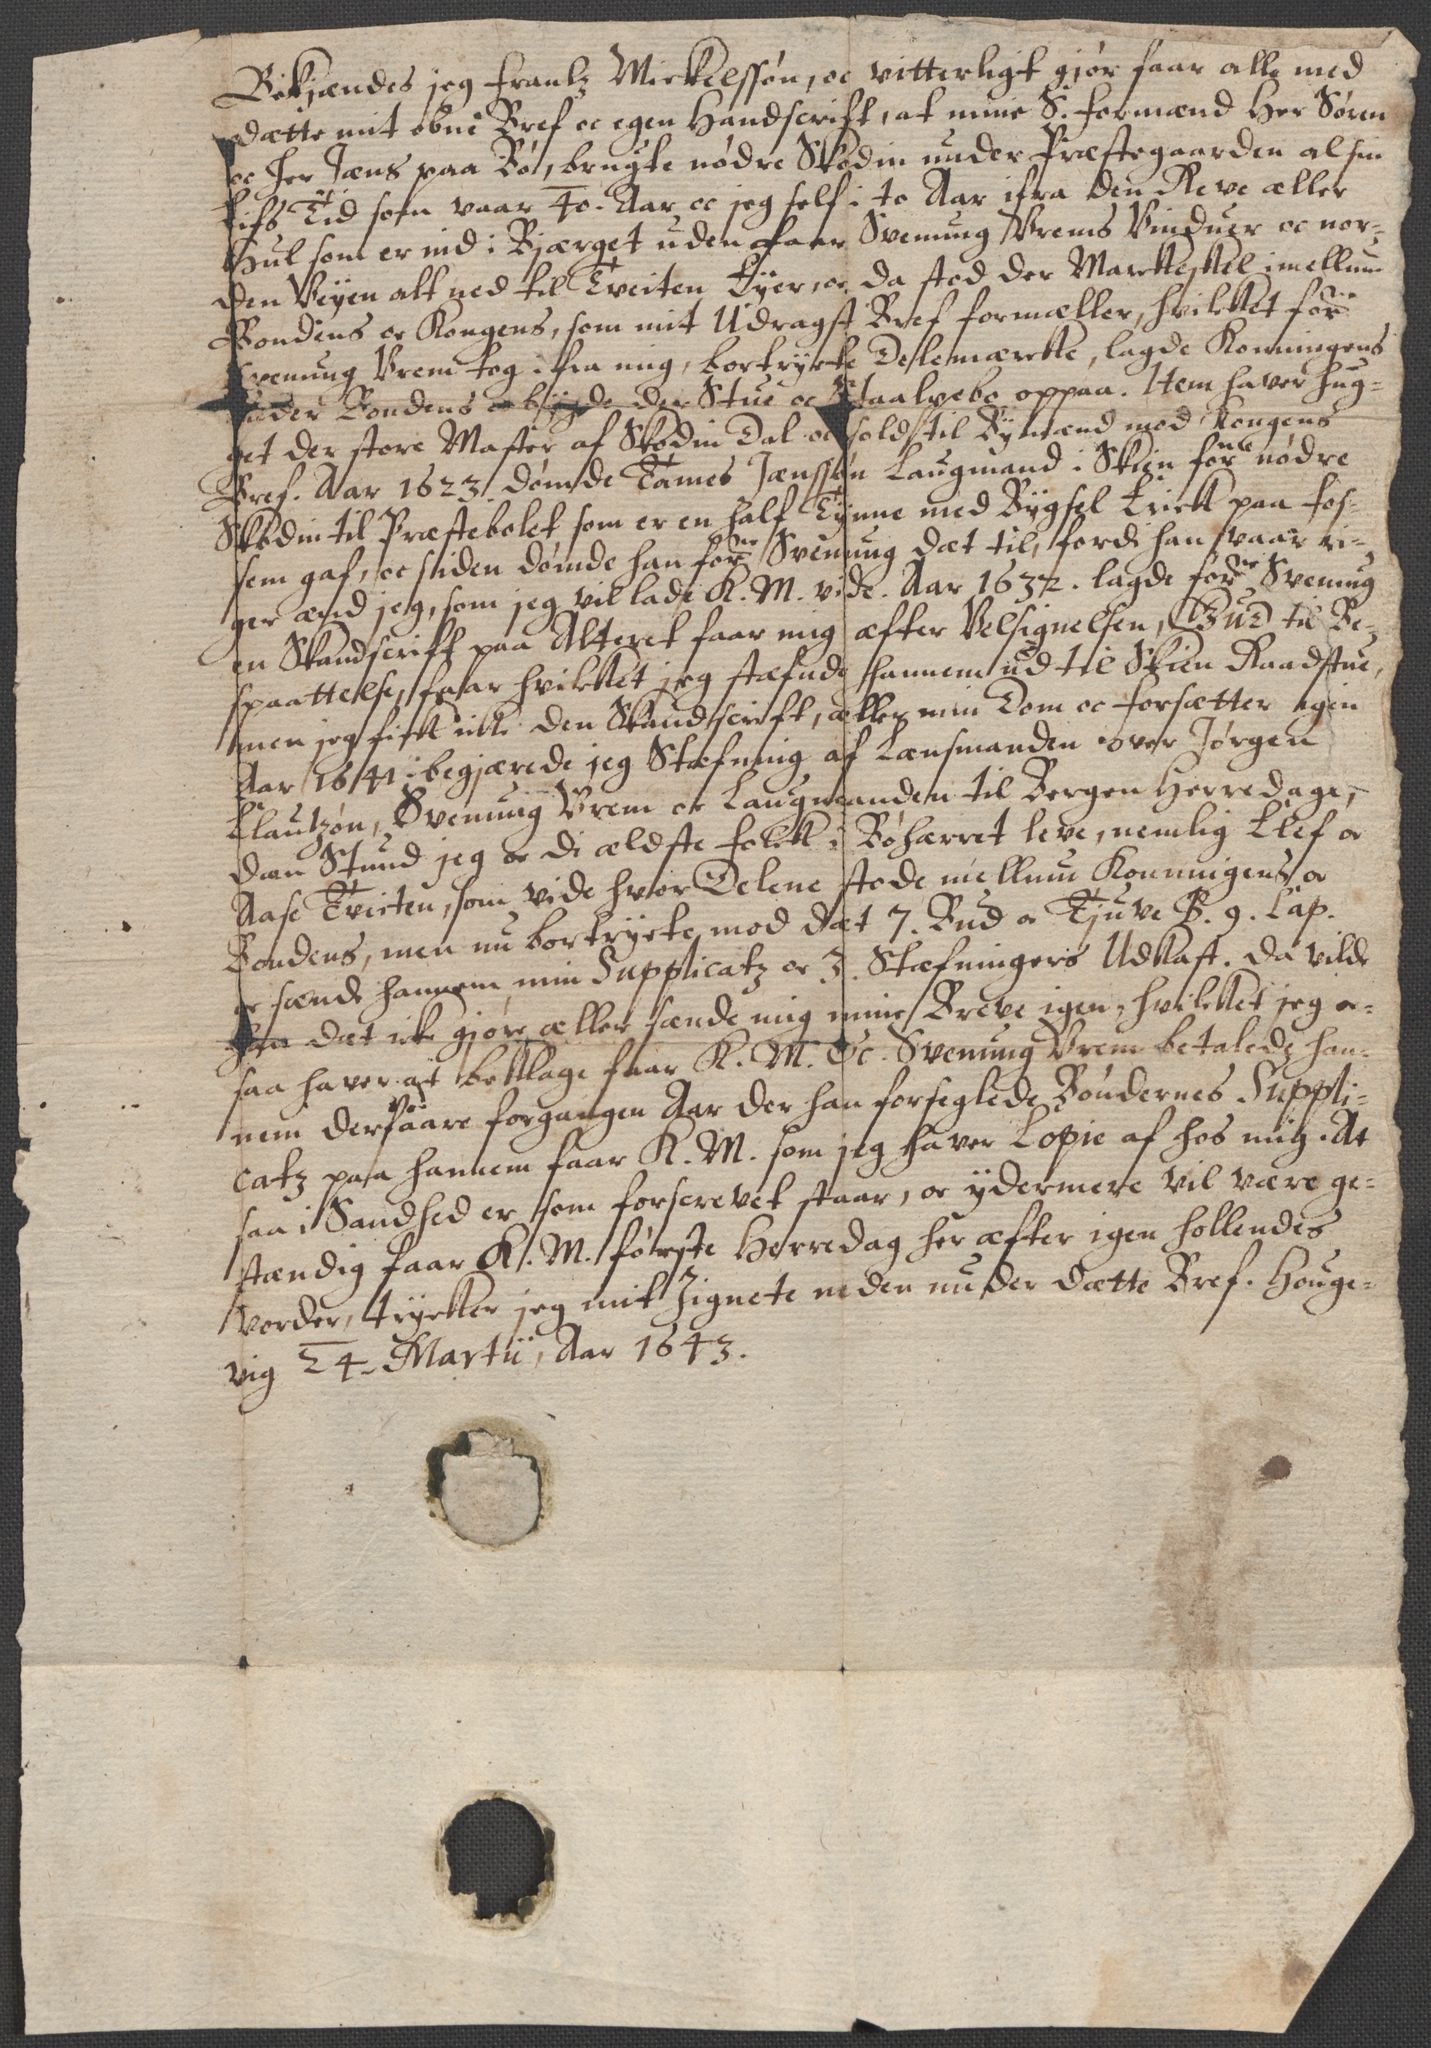 Bekjændes jeg Frantz Mickelssøn, oc vitterligt gjør faar alle med
dætte mit obne Bref oc egen Handscrift, at mine S. formænd Her Søren
oc Her Jæns paa Bø, brugte nødre Skodin under Præstegaarden al sin
Lifs Tid som vaar 40. Aar oc jeg self i to Aar ifra den Reve æller
Hul som er ind i Bjærget uden faar Svenung Vrems Vinduer oc nor-
den Veyen alt ned til Tveiten Tyer, oc da stod der Markeskel imellum
Bondens oc Kongens, som mit Udragst Bref formæller, hvilket forne
Svenung Vrem tog ifra mig, bortrykte Delemærke, lagde Konningens
under Bondens oc bygde der Stue oc Staalvebo oppaa. Item haver hug-
get der store Master af Skodin Dal oc sold til Bymænd mod Kongens
Bref. Aar 1623 dømde Tames Jænssøn Laugmand i Skien forne nødre
Skodin til Præstebolet som er en half Tynne med Bygsel Trick paa Fos-
sem gaf, oc siden dømde han forne Svenung dæt til, fordi han vaar ri-
ger ænd jeg, som jeg vil lade K. M. vide. Aar 1632. lagde forne Svenung
en Skandscrift paa Alteret faar mig æfter Velsignelsen, Gud til Be-
spaattelse, faar hvilket jeg stæfnde hannem ud til Skien Raadstue,
men jeg fick ikke den Skandscrift, æller min Dom oc Forsætter igien
Aar 1641 begjærede jeg Stæfning af Lænsmanden over Jørgen
Clautzøn, Svenung Vrem oc Laugmanden til Bergen Herredage,
dæn Stund jeg oc di ældste Folck i Bøhærret leve, nemlig Elef oc
Aase Tveiten, som vide hvor Delene stode mellum Konningens oc
Bondens, men nu bortryckte mod dæt 7. Bud oc Tjuve B. 9. Cap.
oc sænde hannem min Supplicatz oc 3. Stæfningers Udkast. Da vilde
han dæt icke gjøre æller sænde mig mine Breve igen, hvilket jeg oc-
saa haver at beklage faar K. M. &c. Svenung Vrem betalede han-
nem derfaare forgangen Aar der han forseglede Bøndernes Suppli-
catz paa hannem faar K. M. som jeg haver Copie af hos mig. At
saa i Sandhed er som forscrevet staar, oc ydermere vil være ge-
stændig faar K. M. første Herredag her æfter igen hollendes
vorder, trycker jeg mit Zignete neden under dætte Bref. Houge-
vig 24. Martii, Aar 1643.